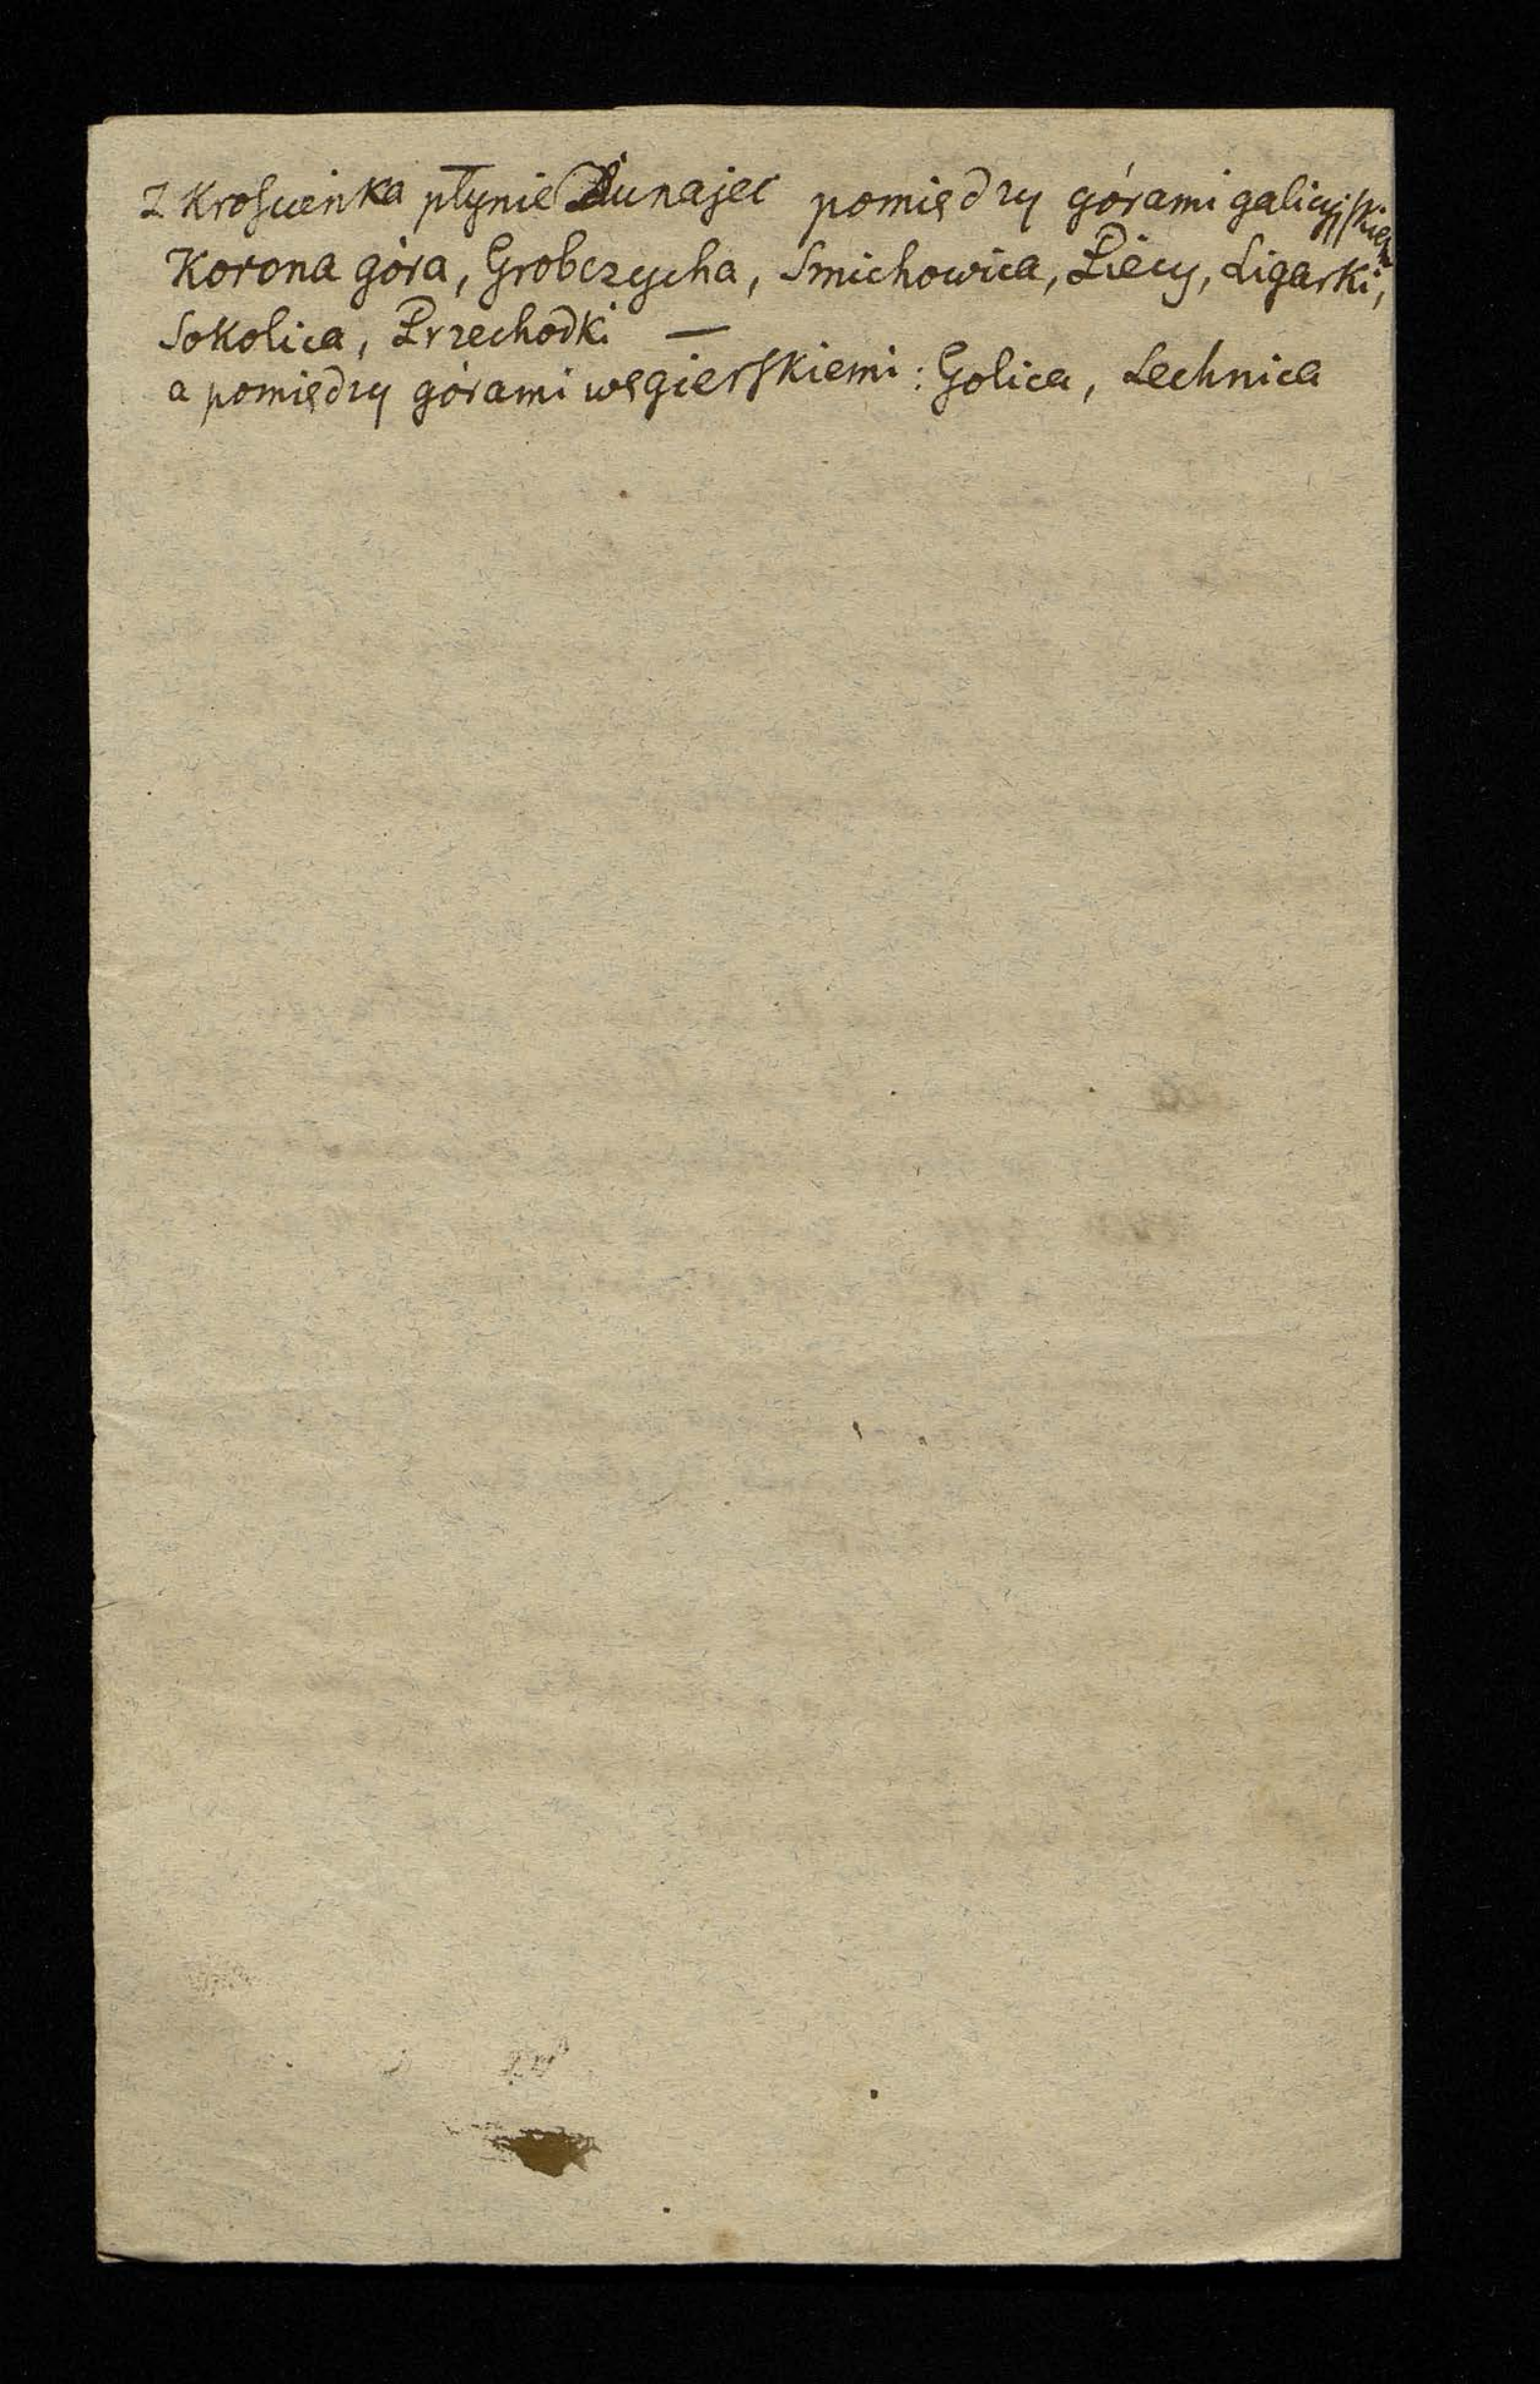 Z Krościenka płynie Dunajec pomiędzy górami galicyjskiem
Korona góra, Grobczycha, Smichowica, Piecy, Ligarki,
Sokolica, Przechodki —
a pomiędzy górami węgierskiemi: Golica, Lechnica